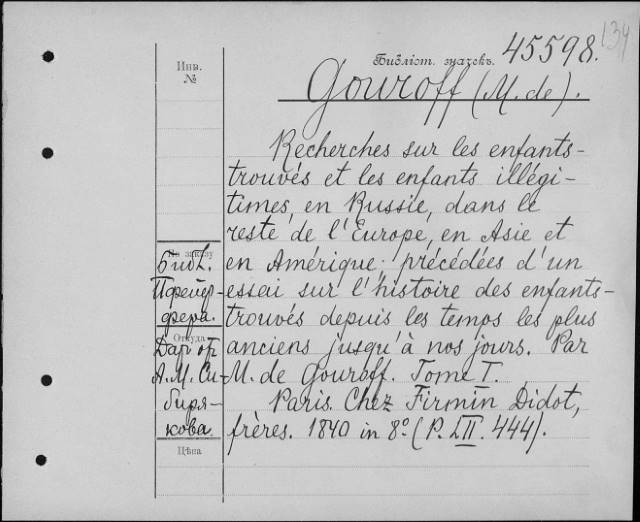 134
Библіот. значекъ. 45598.
Инв.
№
Gouroff (M. de).
Recherches sur les enfants-
trouvés et les enfants illégi-
times, en Russie, dans le
reste de l'Europe, en Asie et
en Amérique; précédées d'un
essai sur l'histoire des enfants-
trouvés depuis les temps les plus
anciens jusqu'à nos jours. Par
M. de Gouroff. Tome I.
Paris. Chez Firmin Didot,
frères. 1840 in 8º (P. LII. 444).
По заказу
Библ.
Пфейф-
фера.
Откуда
Дар от
А. М. Си-
биря-
кова.
Цѣна